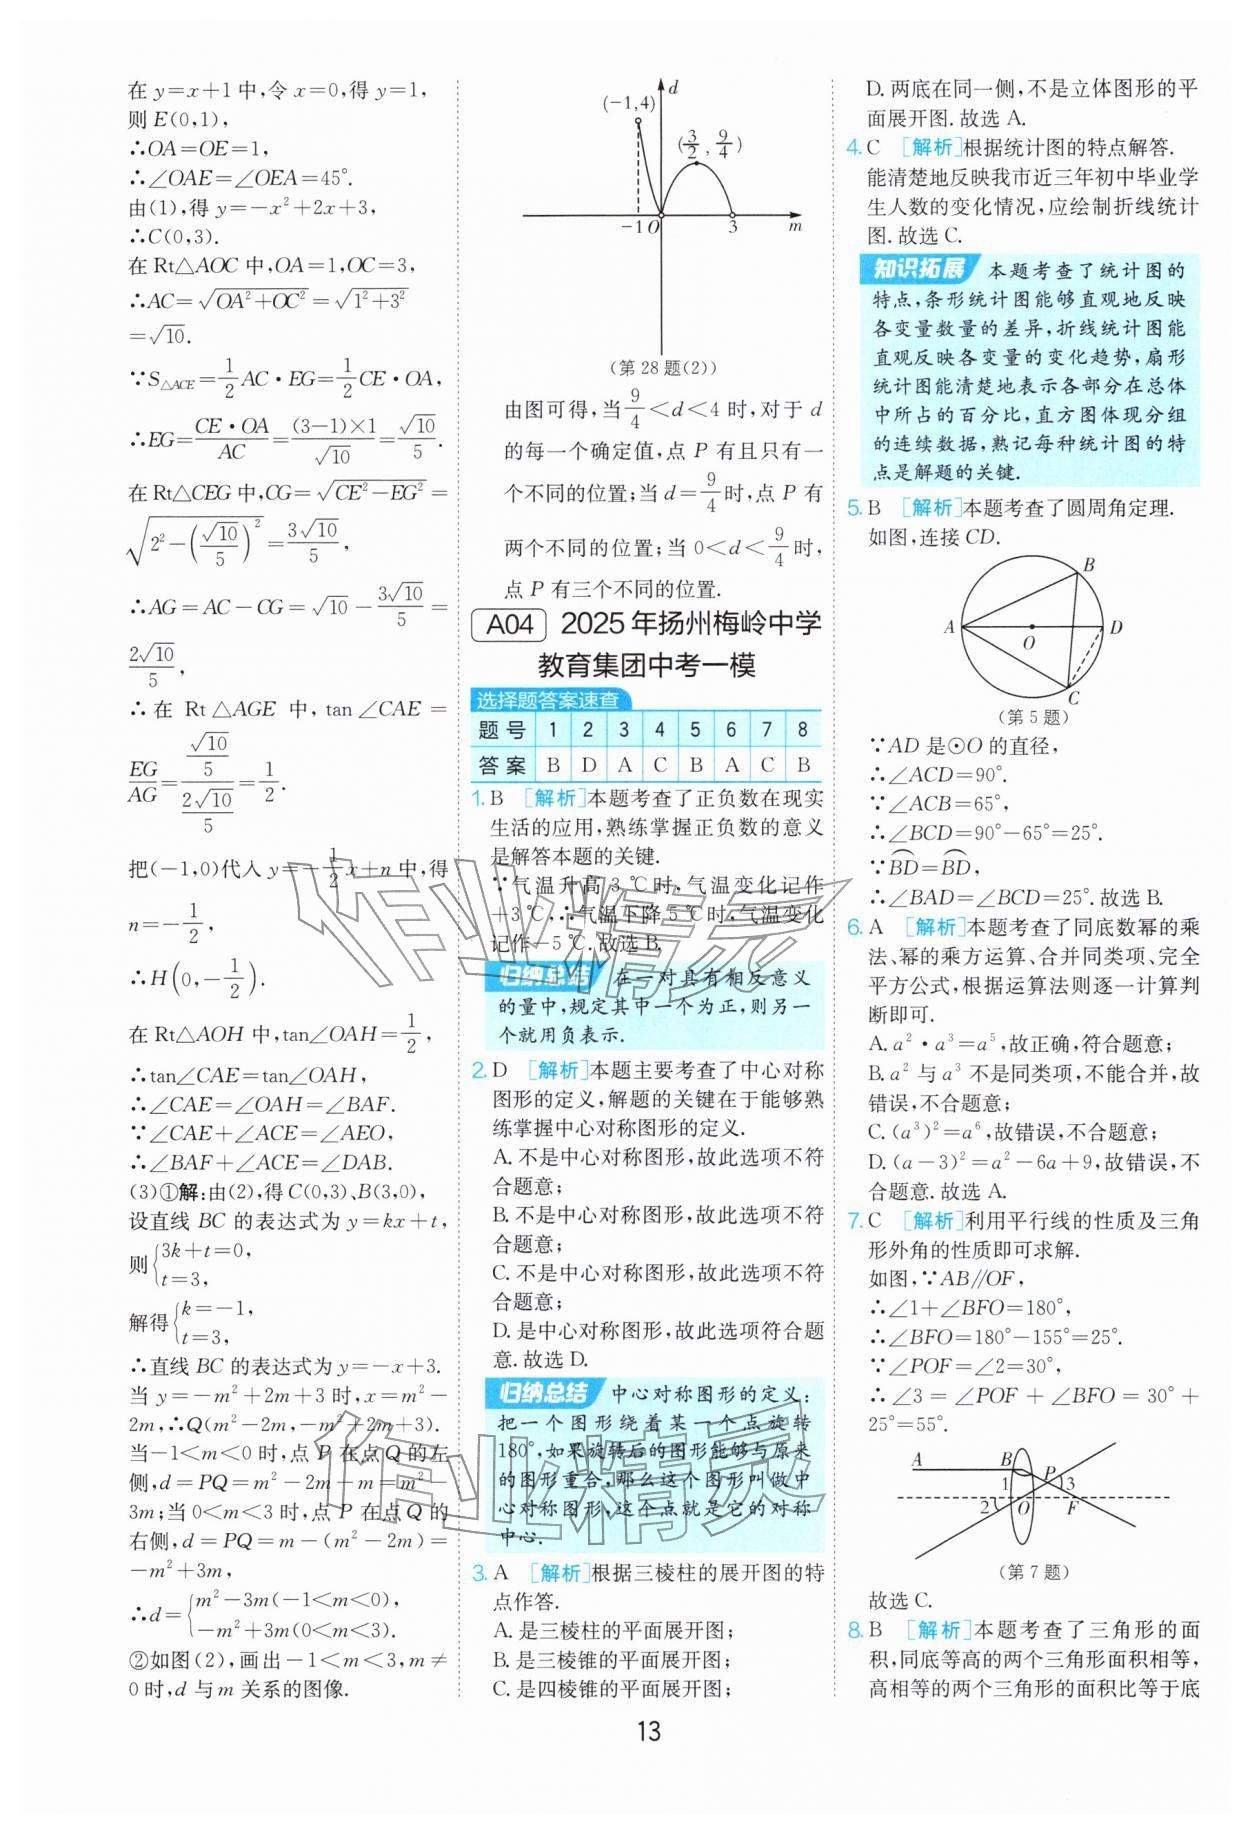 在 y=x+1 中,令 x=0,得 y=1,
则 E(0,1),
∴OA=OE=1,
∴∠OAE=∠OEA=45°.
由(1),得 y=-x²+2x+3,
∴C(0,3).
在 Rt△AOC 中,OA=1,OC=3,
∴AC=√(OA²+OC²)=√(1²+3²)
=√10.
∵S△ACE=1/2 AC·EG=1/2 CE·OA,
∴EG=CE·OA/AC=(3-1)×1/√10=√10/5.
在 Rt△CEG 中,CG=√(CE²-EG²)=
√(2²-(√10/5)²)=3√10/5,
∴AG=AC-CG=√10-3√10/5=
2√10/5,
∴在 Rt△AGE 中,tan∠CAE=
EG/AG=(√10/5)/(2√10/5)=1/2.
把(-1,0)代入 y=-1/2 x+n 中,得
n=-1/2,
∴H(0,-1/2).
在 Rt△AOH 中,tan∠OAH=1/2,
∴tan∠CAE=tan∠OAH,
∴∠CAE=∠OAH=∠BAF.
∵∠CAE+∠ACE=∠AEO,
∴∠BAF+∠ACE=∠DAB.
(3)①解:由(2),得 C(0,3)、B(3,0),
设直线 BC 的表达式为 y=kx+t,
则{3k+t=0,
t=3,
解得{k=-1,
t=3,
∴直线 BC 的表达式为 y=-x+3.
当 y=-m²+2m+3 时,x=m²-
2m,∴Q(m²-2m,-m²+2m+3).
当-1<m<0 时,点 P 在点 Q 的左
侧,d=PQ=m²-2m-m=m²-
3m;当 0<m<3 时,点 P 在点 Q 的
右侧,d=PQ=m-(m²-2m)=
-m²+3m,
∴d={m²-3m(-1<m<0),
-m²+3m(0<m<3).
②如图(2),画出-1<m<3,m≠
0 时,d 与 m 关系的图像.
d
(-1,4)
(3/2,9/4)
-1 O 3 m
(第 28 题(2))
由图可得,当 9/4<d<4 时,对于 d
的每一个确定值,点 P 有且只有一
个不同的位置;当 d=9/4 时,点 P 有
两个不同的位置;当 0<d<9/4 时,
点 P 有三个不同的位置.
A04 2025 年扬州梅岭中学
教育集团中考一模
选择题答案速查
题号 1 2 3 4 5 6 7 8
答案 B D A C B A C B
1. B [解析]本题考查了正负数在现实
生活的应用,熟练掌握正负数的意义
是解答本题的关键.
∵气温升高 3 ℃时,气温变化记作
+3 ℃,∴气温下降 5 ℃时,气温变化
记作-5 ℃.故选 B.
归纳总结 在一对具有相反意义
的量中,规定其中一个为正,则另一
个就用负表示.
2. D [解析]本题主要考查了中心对称
图形的定义,解题的关键在于能够熟
练掌握中心对称图形的定义.
A. 不是中心对称图形,故此选项不符
合题意;
B. 不是中心对称图形,故此选项不符
合题意;
C. 不是中心对称图形,故此选项不符
合题意;
D. 是中心对称图形,故此选项符合题
意.故选 D.
归纳总结 中心对称图形的定义:
把一个图形绕着某一个点旋转
180°,如果旋转后的图形能够与原来
的图形重合,那么这个图形叫做中
心对称图形,这个点就是它的对称
中心.
3. A [解析]根据三棱柱的展开图的特
点作答.
A. 是三棱柱的平面展开图;
B. 是三棱锥的平面展开图;
C. 是四棱锥的平面展开图;
D. 两底在同一侧,不是立体图形的平
面展开图.故选 A.
4. C [解析]根据统计图的特点解答.
能清楚地反映我市近三年初中毕业学
生人数的变化情况,应绘制折线统计
图.故选 C.
知识拓展 本题考查了统计图的
特点,条形统计图能够直观地反映
各变量数量的差异,折线统计图能
直观反映各变量的变化趋势,扇形
统计图能清楚地表示各部分在总体
中所占的百分比,直方图体现分组
的连续数据,熟记每种统计图的特
点是解题的关键.
5. B [解析]本题考查了圆周角定理.
如图,连接 CD.
B
A O D
C
(第 5 题)
∵AD 是⊙O 的直径,
∴∠ACD=90°.
∵∠ACB=65°,
∴∠BCD=90°-65°=25°.
∵B͡D=B͡D,
∴∠BAD=∠BCD=25°.故选 B.
6. A [解析]本题考查了同底数幂的乘
法、幂的乘方运算、合并同类项、完全
平方公式,根据运算法则逐一计算判
断即可.
A. a²·a³=a⁵,故正确,符合题意;
B. a² 与 a³ 不是同类项,不能合并,故
错误,不合题意;
C. (a³)²=a⁶,故错误,不合题意;
D. (a-3)²=a²-6a+9,故错误,不
合题意.故选 A.
7. C [解析]利用平行线的性质及三角
形外角的性质即可求解.
如图,∵AB∥OF,
∴∠1+∠BFO=180°,
∴∠BFO=180°-155°=25°.
∵∠POF=∠2=30°,
∴∠3=∠POF+∠BFO=30°+
25°=55°.
A B
1 P 3
2 O F
(第 7 题)
故选 C.
8. B [解析]本题考查了三角形的面
积,同底等高的两个三角形面积相等,
高相等的两个三角形的面积比等于底
13
作业精灵
作业精灵